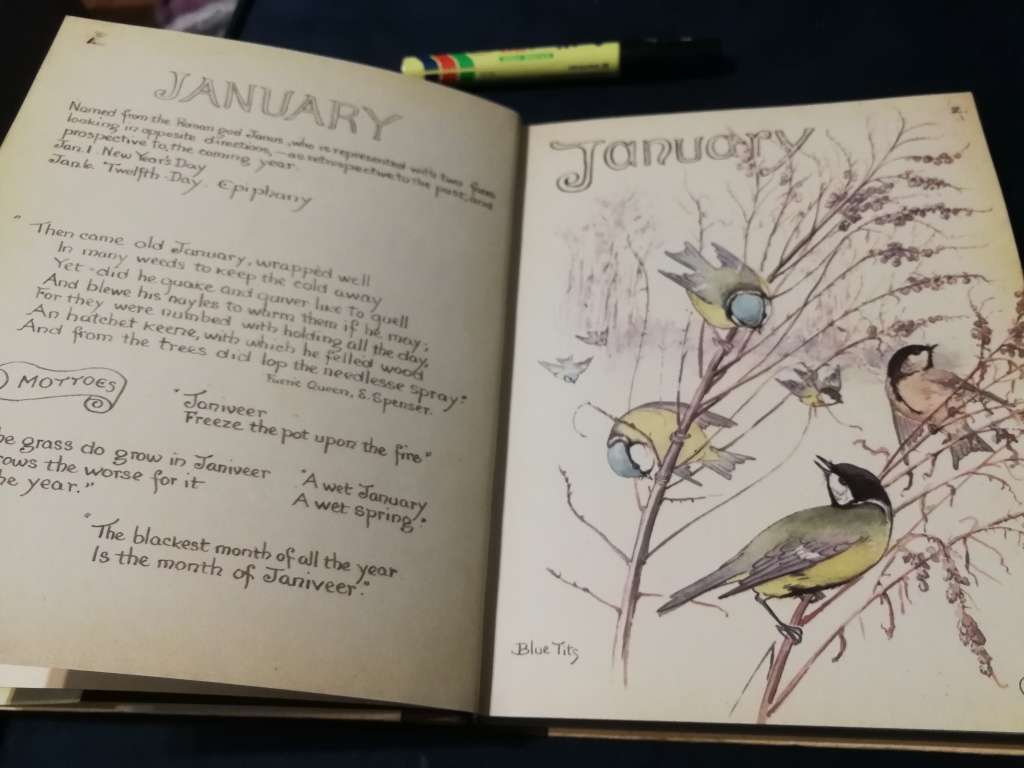 JANUARY
Named from the Roman god Janus, who is represented with two faces
looking in opposite directions, — as retrospective to the past, and
prospective to the coming year.
Jan. 1. New Year's Day
Jan. 6. Twelfth-Day. Epiphany
"Then came old January, wrapped well
In many weeds to keep the cold away
Yet did he quake and quiver like to quell
And blowe his nayles to warm them if he may;
For they were numbed with holding all the day
An hatchet keene, with which he felled wood
And from the trees did lop the needlesse spray."
Faerie Queen, E. Spenser.
MOTTOES
"Janiveer
Freeze the pot upon the fire"
he grass do grow in Janiveer
rows the worse for it
he year."
"A wet January
A wet Spring."
"The blackest month of all the year
Is the month of Janiveer."
January
Blue Tits